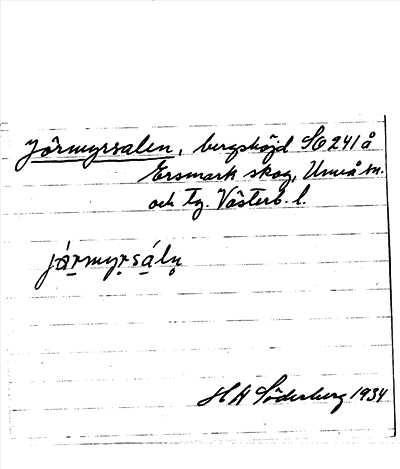 Jörmyrsalen, bergshöjd SO 241 å
Ersmark skog, Umeå sn.
och tg. Västerb. l.
jármyṛsáln̥
H A Söderberg 1934